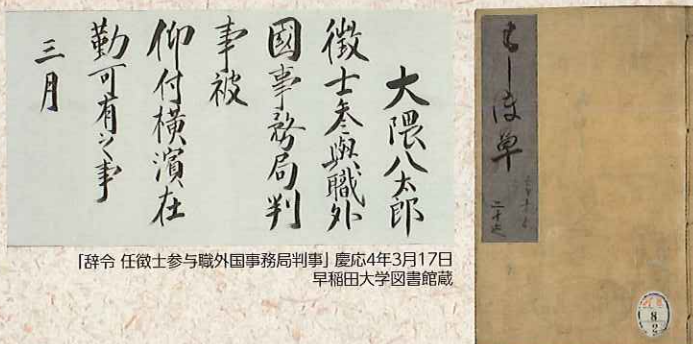 大隈八太郎
徴士参與職外
國事務局判
事被
仰付横濱在
勤可有之事
三月
「辞令 任徴士参与職外国事務局判事」慶応4年3月17日
早稲田大学図書館蔵
もしほ草
8
2